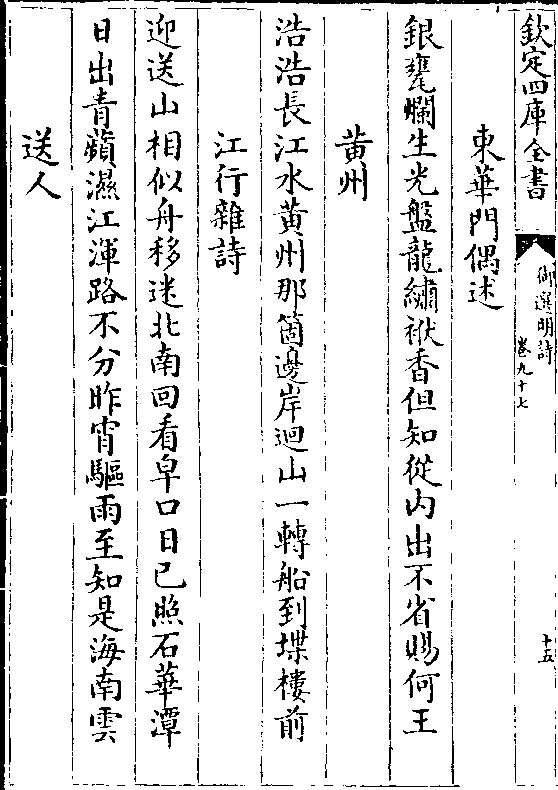 欽定四庫全書
御選明詩
卷九十七
十五
東華門偶述
銀甕爛生光盤龍繡袱香但知從内出不省賜何王
黄州
浩浩長江水黄州那箇邊岸迴山一轉船到堞樓前
江行雜詩
迎送山相似舟移迷北南回看皁口日已照石華潭
日出青蘋濕江渾路不分昨宵驅雨至知是海南雲
送人